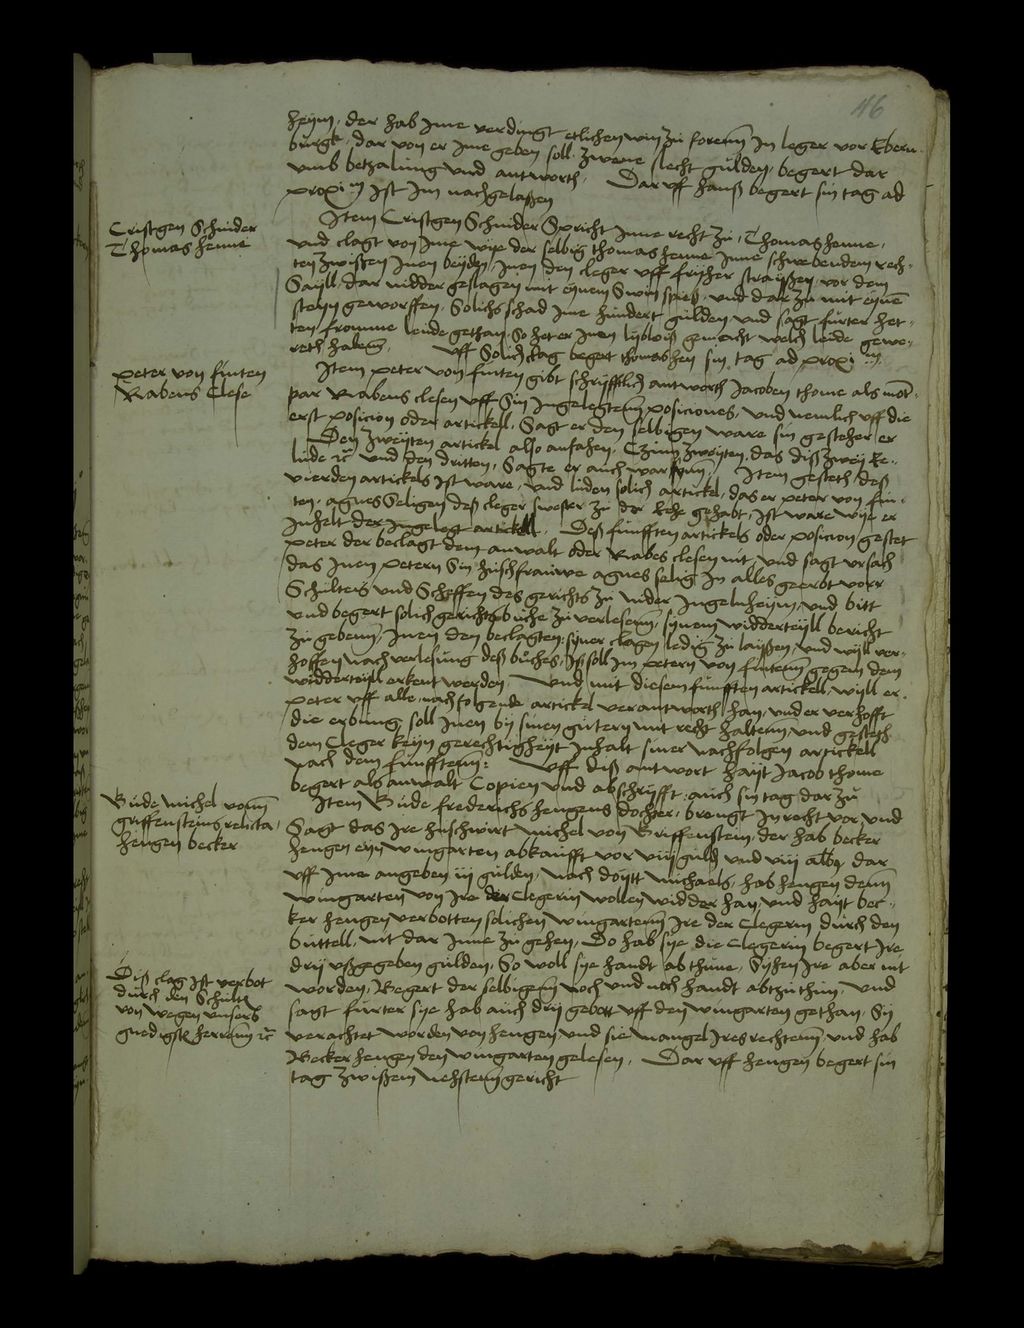 46
heym, der hab Ime verdingt etlichen win zu forenn In leger vor Ebern
burgk, dar von er Ime geben soll zwene slecht gulden, begert dar
umb betzalung und antworth, Dar uff hanß begert sin tag ad
proxi m Ist Im nachgelaßen
Cristgen Schnider
Thomas henne
Item Cristgen Schnider Spricht Ime recht zu, Thomas henne,
und clagt von Ime wye der selbig thomas henne Inne schwebendem rech
ten zwißen Inen beyden, Inen den cleger uff fryher straißen, vor dem
Sayll, dar nidder geslagen mit eynem Swin spieß, und dar zu mit eyne
steyn geworffen, Solichs schad Ime hundert gulden und sagt furter het
ten fromme leude gethan, So het er Inen lybloiß gemacht welch leude gewe
reth habenn, Uff Solich clag begert thomas hen sin tag ad proxi m
peter von finten
Rabens Clese
Item peter von finten gibt schryfftlich antworth Jacoben thome als mo
par Rabens clesen uff Sin Ingelegtenn posiciones, und nemlich uff die
erst posicion oder artickell, Sagt er den selbigen ware sin gesteher er
Den zweyten artickel also anfahen, Czum zweyten, das diß zwey Ee
lude rc und den dritten, Sagte er auch war synn, Item gesteth deß
vierden artickels Ist ware, und luden solich artickel, das er peter von fin
ten, agnes Seligen deß cleger swester zu der Ehe gehabt, Ist ware wye er
Inhelt der Ingelegt artickell, Deß funfften artickels oder posicion gestet
peter der beclagt dem anwalt oder Rabes clesen nit, und sagt ursach
das Inen petern Sin hußfrauwe agnes selig In alles geerbt vorr
Schulteis und Scheffen des gerichts zu nider Ingelnheym, und bitt
und begert solich gerichtsbuche zu verlesenn, synem widderteyll bericht
zu gebenn, Inen den beclagten syner clagen ledig zu laißen, und wyll ver
hoffen nach verlesung deß buches, Iß soll Im petern von fintenn gegen dem
widderteyll erkent werden Und mit diesem funfften artickell, wyll er
peter uff alle nach folgende artickel verantworth han, und er verhofft
die erbung soll Inen by sinen gutern mit recht haltenn, und gesteth
dem Cleger keyn gerechtigheyt Inhalt siner nachfolgen artickell
nach dem funfftenn: Uff diß antwort hayt Jacob thome
begert als anwalt Copien und abschryfft, auch sin tag dar zu
Bude michel vonn
griffensteins relicta,
hengen becker
Item Bude frederichs hengens dochter, brengt In recht vor und
Sagt das Ire hußwirt michel von Griffenstein, der hab becker
hengen eyn wingarten abkaufft vor viij guld und viij alb, dar
uff Ime angeben iij gulden, nach doytt michaels, hab hengen denn
wingarten von Ire der Clegerin wollen widder han, und hayt bec
ker hengen verbotten solichen wingartenn Ire der Clegerin durch den
buttell, nit dar Inne zu gehen, Do hab sye die Clegerin begert Ire
dry ußgegeben gulden, So woll sye handt ab thune, Syhen Ire aber nit
worden, Begert der selbigenn noch und noch handt abtzuthun, und
sagt furter sye hab auch dry gebott uff den wingarten gethan, Sy
verachtet worden von hengen und sie mangel Ires rechtenn, und hab
Becker hengen den wingarten gelesen, Dar uff hengen begert sin
tag zwißem nehstenn gericht
Diß clag Ist verbot
durch den Schulteß
von wegen unsers
gned igsten herrenn rc